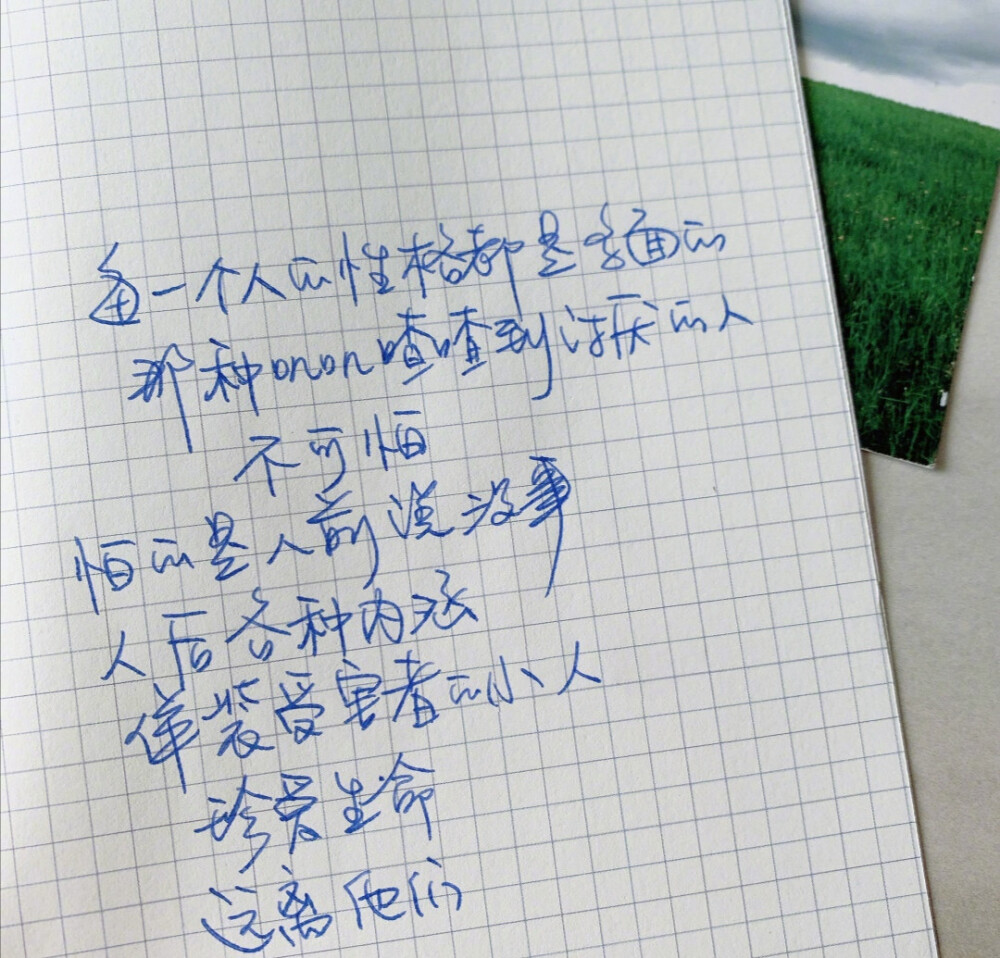 每一个人的性格都是多面的
那种叽叽喳喳到讨厌的人
不可怕
怕的是人前说没事
人后各种内涵
佯装受害者的小人
珍爱生命
远离他们